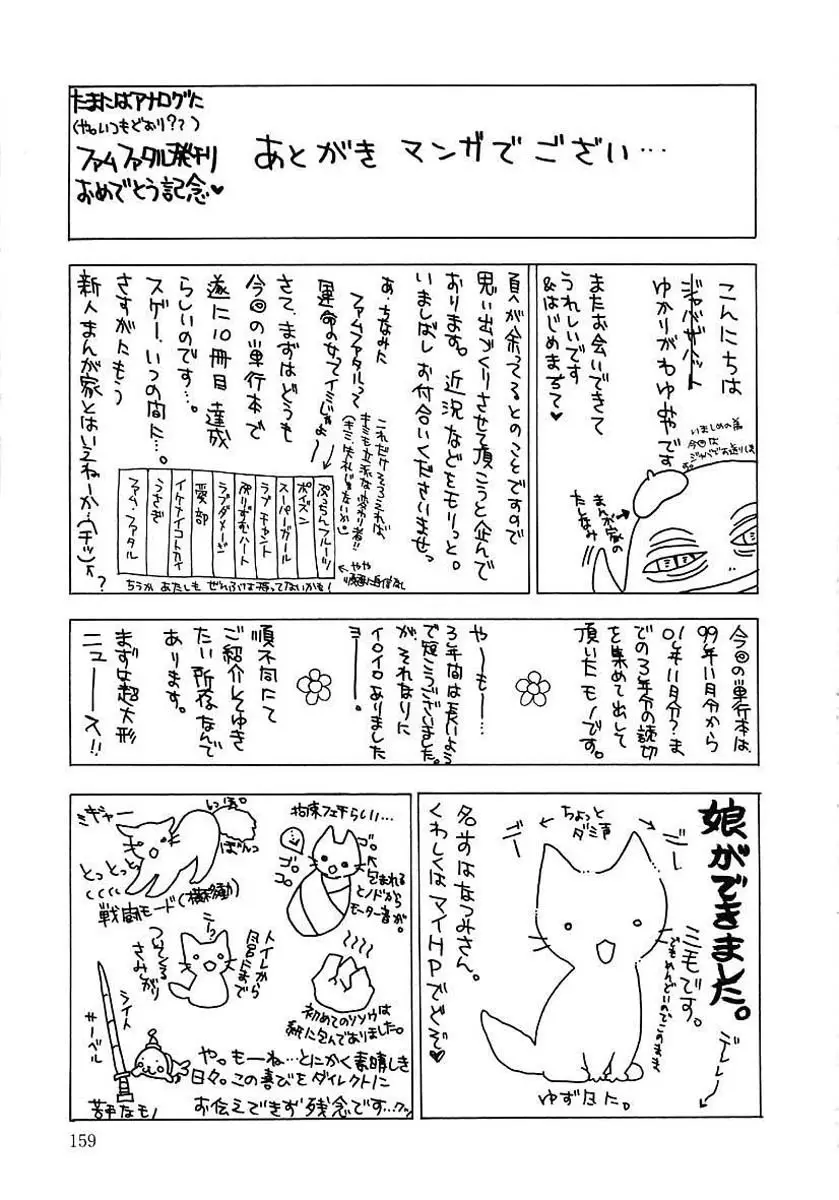 たまにはアナログに
(やっいつもどおり??)
ファムファタル発刊
おめでとう記念♥
あとがき マンガでござい…
こんにちは
ジャバザハット
ゆかりがわゆみやです
またお会いできて
うれしいです
&はじめまちて♥
いましめの為
今回は
ジャバでお送りしま
す。
まんが家の
たしなみ
頁が余ってるとのことですので
思い出づくりさせて頂こうと企んで
おります。近況などをモリっと。
いましばしお付合いくださいませっ
あ、ちなみに
ファムファタルって
運命の女ってイミじゃよ
これだけそろえれば、
キミも立派な変わり者!!
(キミに失礼じゃないか)
さて、まずはどうも
今回の単行本で
遂に10冊目達成
らしいのです…。
スゲー、いつの間に…。
さすがにもう
新人まんが家とはいえねーか…(チッ)
?
ぷっちんフルーツ
ポイズン
スーパーガール
ラブチャント
ぷりずむハート
ラブダメージ
愛部
イケナイコトカイ
うさぎ
ファム・ファタル
←やや
順番に自信なし
ちうか あたしも ぜんぶは持ってないかも!
今回の単行本は、
99年11月分から
01年11月分?ま
での3年分の読切
を集めて出して
頂いたモノです。
や〜も〜…
3年間は長いよう
で短こうございました。
が、それなりに
イロイロありました
ヨー!
順不同にて
ご紹介してゆき
たい所存なんで
あります。
まずは超大形
ニュース!!
娘ができました。
三毛です。
でもめんどいのでこのまま
デレレー
ちょっと
ダミ声
ゴー
ゴー
名まはなつみさん。
くわしくはマイHPでどぞ♥
ゆず似た。
拘束フェチらしい…
ゴロ
ゴロ
包まれる
とノドから
モーター音が。
ミギャー
しっぽ。
ぼんっ
とっとっ
戦闘モード(横移動)
トイレから
風呂にまで
ついてくる
さみしがり
初めてのウンウは
紙に包んでありました。
シイト
サーベル
苦手なモノ
や。もーね…とにかく素晴しき
日々。この喜びをダイレクトに
お伝えできず残念です…クッ
159